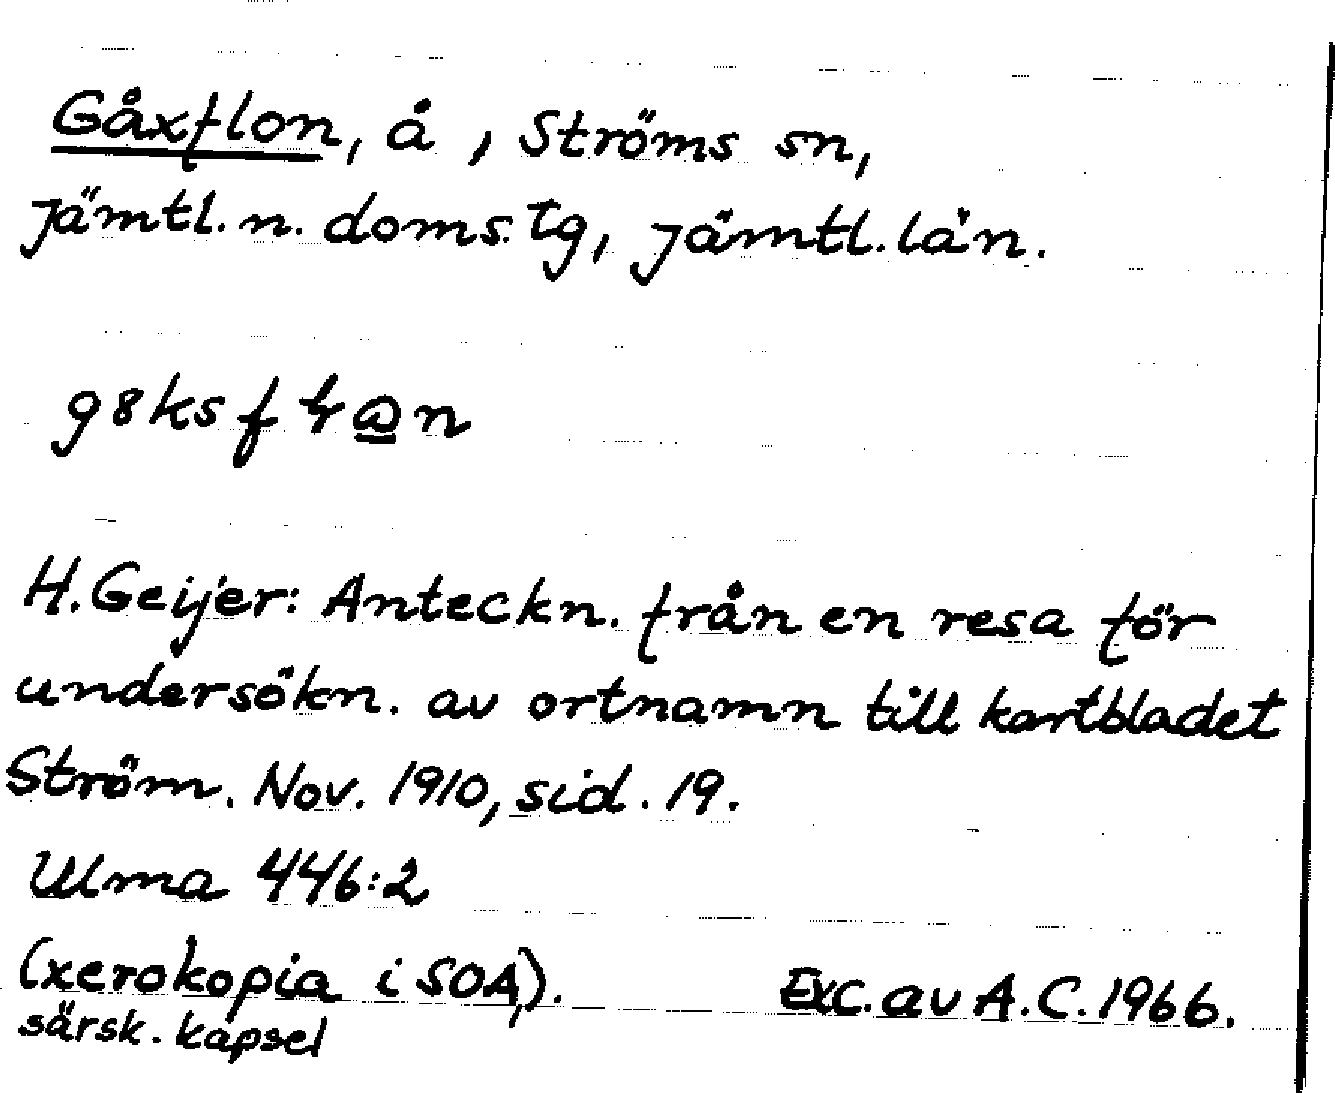 Gåxflon, å, Ströms sn,
Jämtl. n. doms. tg, Jämtl. län.
H. Geijer: Anteckn. från en resa för
undersökn. av ortnamn till kartbladet
Ström. Nov. 1910, sid. 19.
Ulma 446:2
(xerokopia i SOA,). Exc. av A.C. 1966.
särsk. kapsel